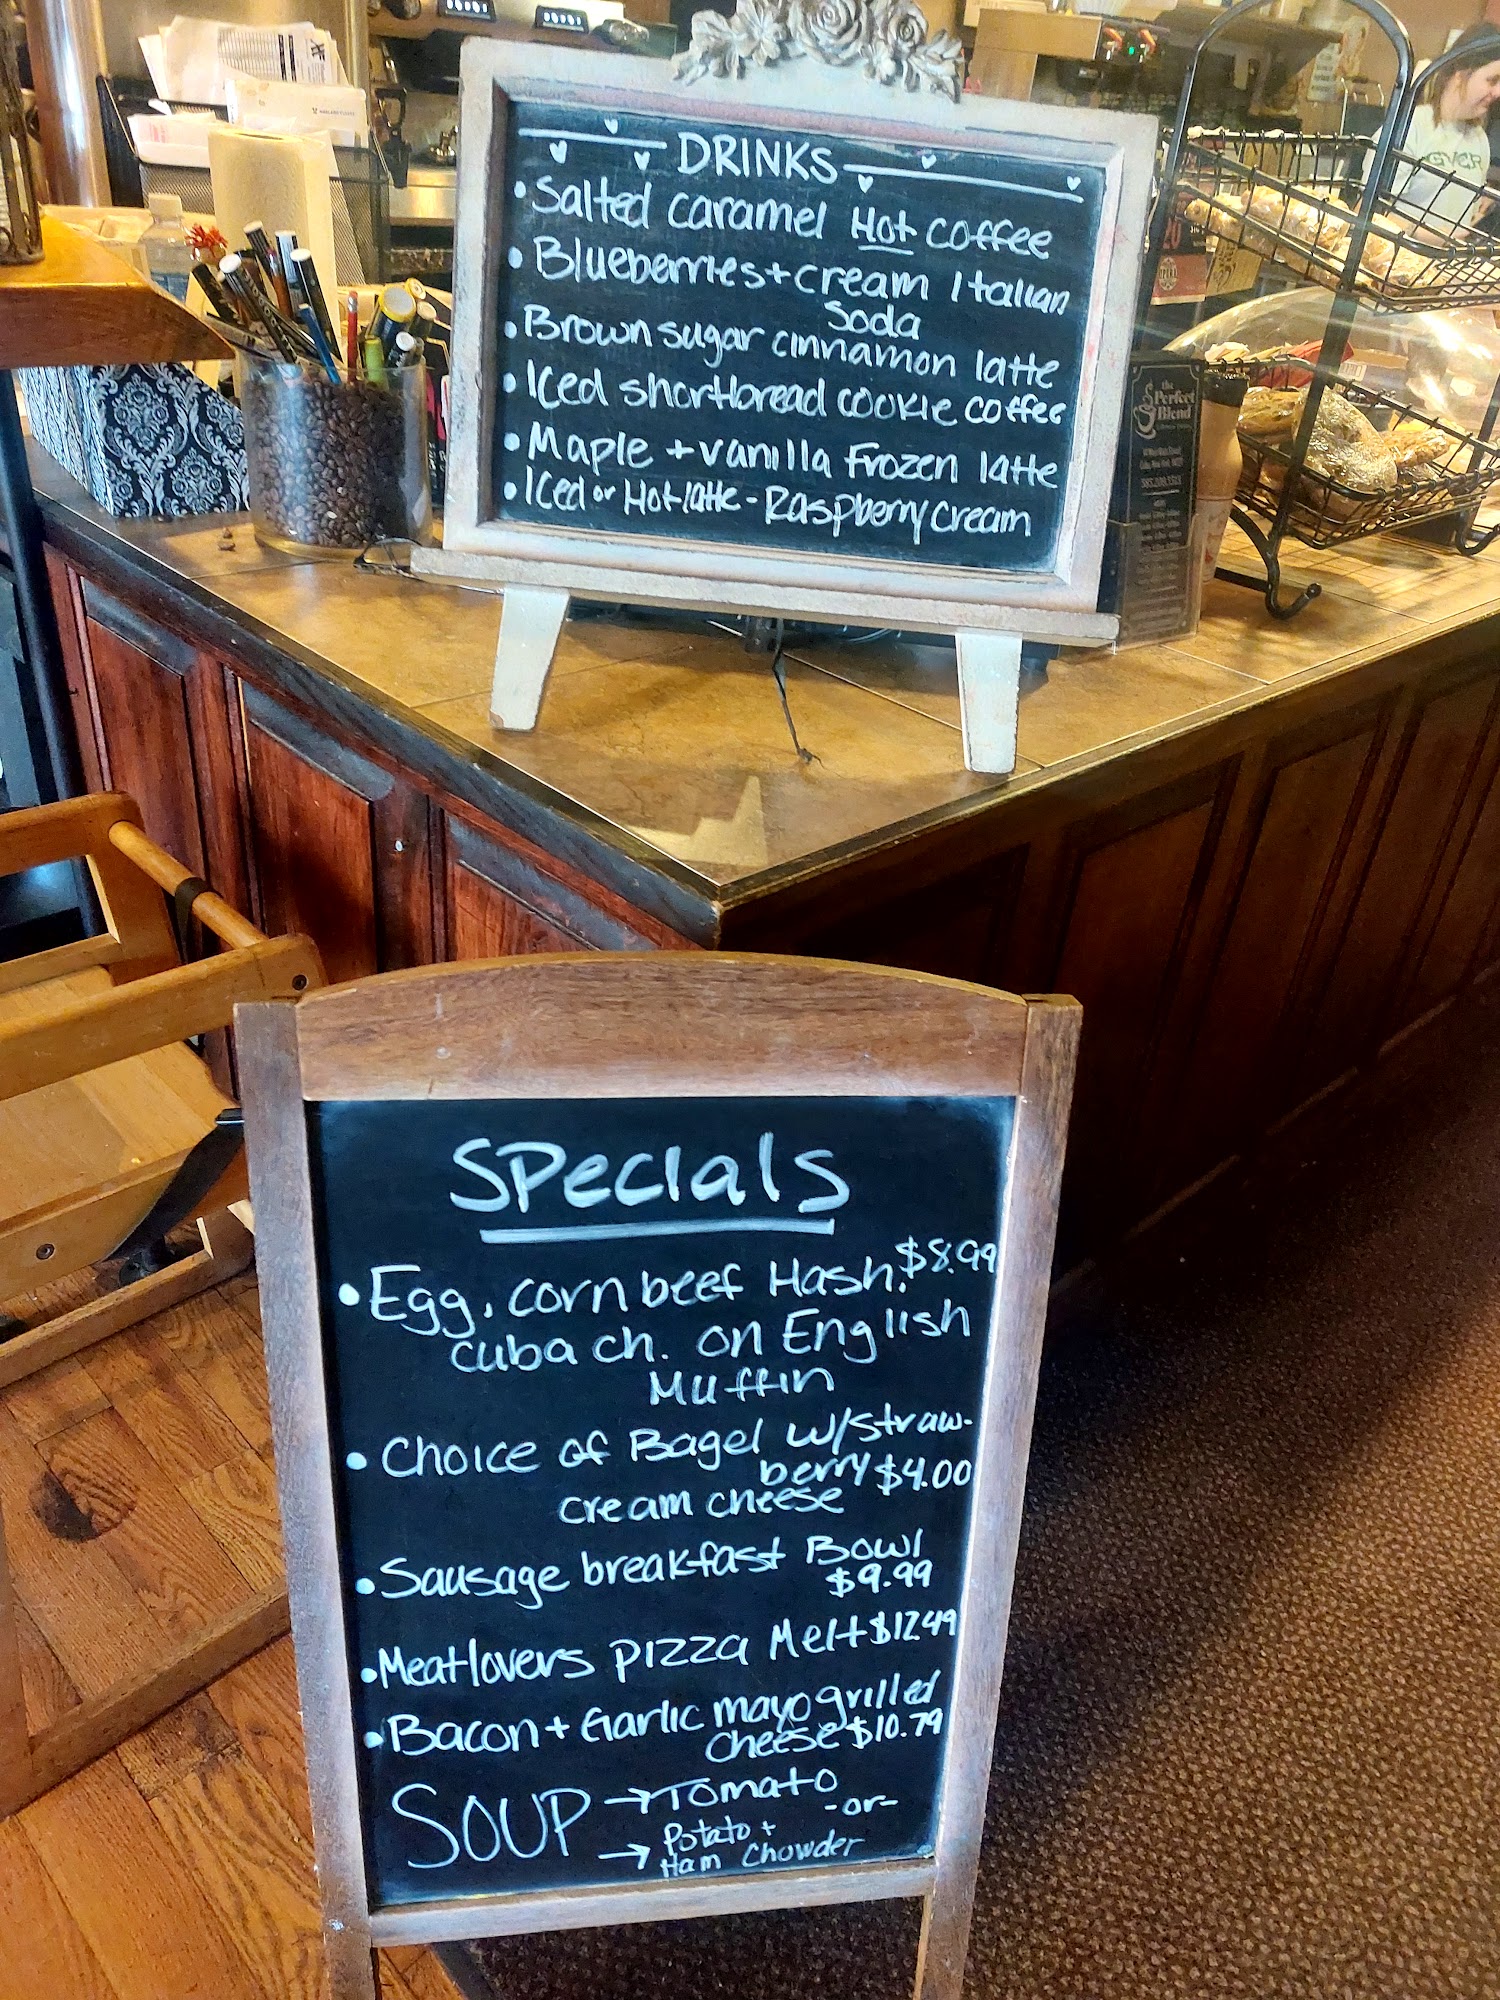 DRINKS
• Salted caramel Hot coffee
• Blueberries + cream Italian
Soda
• Brown sugar cinnamon latte
• Iced shortbread cookie coffee
• Maple + vanilla Frozen latte
• Iced or Hot latte - Raspberry cream
the
Perfect
Blend
Specials
• Egg, corn beef Hash, $8.99
cuba ch. on English
Muffin
• Choice of Bagel w/straw-
berry $4.00
cream cheese
• Sausage breakfast Bowl
$9.99
• Meatlovers pizza Melt $12.49
• Bacon + Garlic mayo grilled
cheese $10.79
SOUP → Tomato
-or-
→ Potato +
Ham Chowder